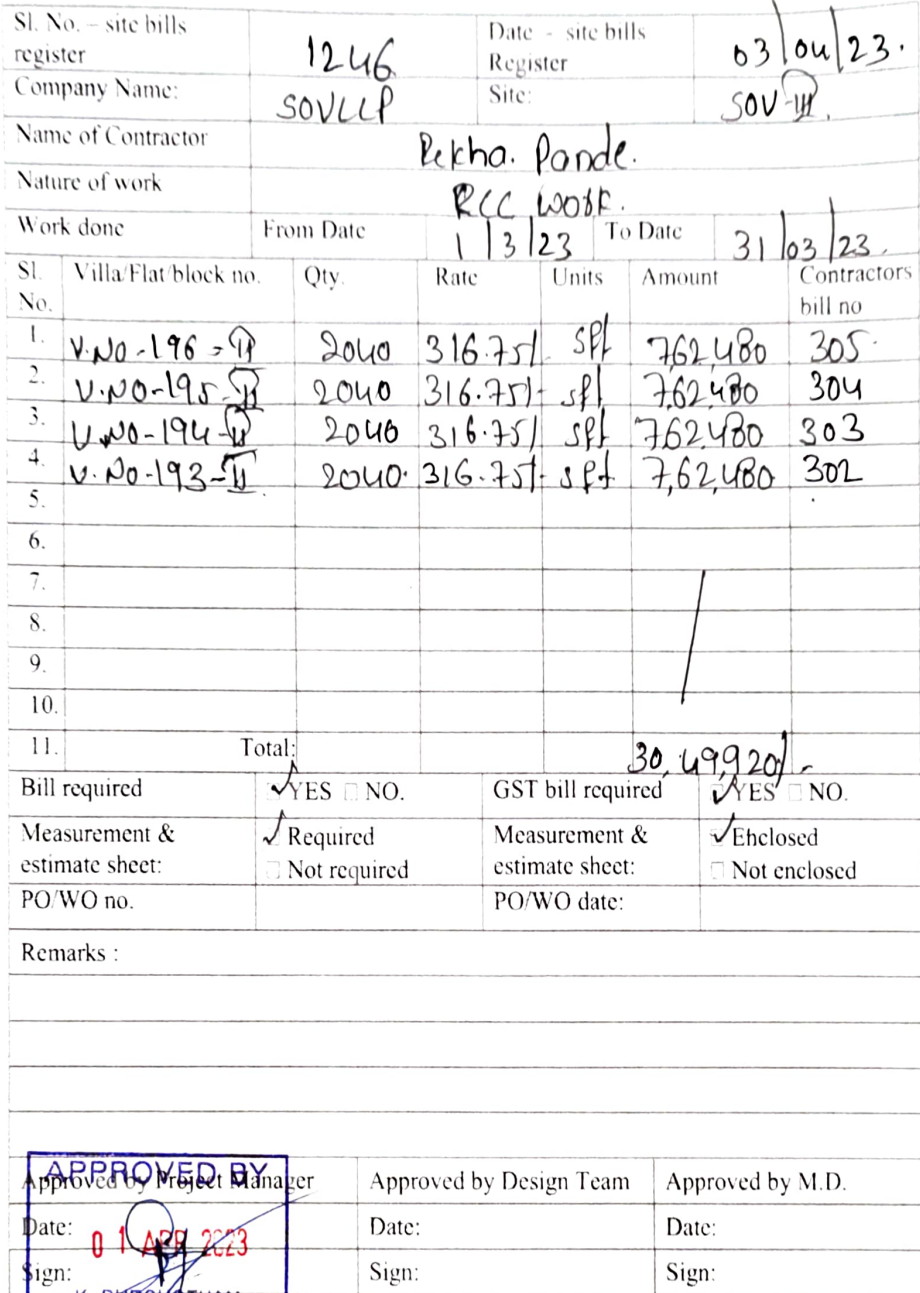 Sl. No. – site bills register 1246 Date - site bills Register 03/04/23.
Company Name: SOVLLP Site: SOV-III.
Name of Contractor Rekha. Pande.
Nature of work RCC WORK.
Work done From Date 1/3/23 To Date 31/03/23.
Sl. No. Villa/Flat/block no. Qty. Rate Units Amount Contractors bill no
1. V.NO-196-II 2040 316.75/- sft 762,480 305
2. V.NO-195-II 2040 316.75/- sft 7,62,480 304
3. V.NO-194-II 2040 316.75/ sft 762,480 303
4. V.NO-193-II 2040. 316.75/- sft 7,62,480 302
5.
6.
7.
8.
9.
10.
11. Total: 30,49,920/-
Bill required YES NO. GST bill required YES NO.
Measurement & estimate sheet: Required Measurement & estimate sheet: Enclosed
Not required Not enclosed
PO/WO no. PO/WO date:
Remarks :
APPROVED BY
Approved by Project Manager Approved by Design Team Approved by M.D.
Date: 01 APR 2023 Date: Date:
Sign: Sign: Sign: